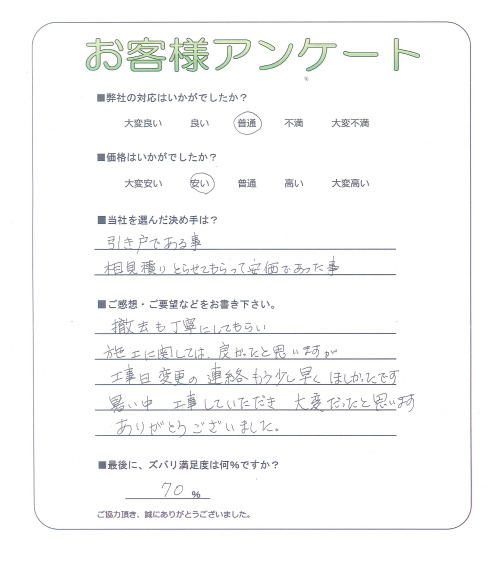 お客様アンケート
■弊社の対応はいかがでしたか？
大変良い 良い 普通 不満 大変不満
■価格はいかがでしたか？
大変安い 安い 普通 高い 大変高い
■当社を選んだ決め手は？
引き戸である事
相見積りとらせてもらって安価であった事
■ご感想・ご要望などをお書き下さい。
撤去も丁寧にしてもらい
施工に関しては、良かったと思いますが
工事日変更の連絡もう少し早くほしかったです
暑い中 工事していただき 大変だったと思います
ありがとうございました。
■最後に、ズバリ満足度は何%ですか？
70 %
ご協力頂き、誠にありがとうございました。